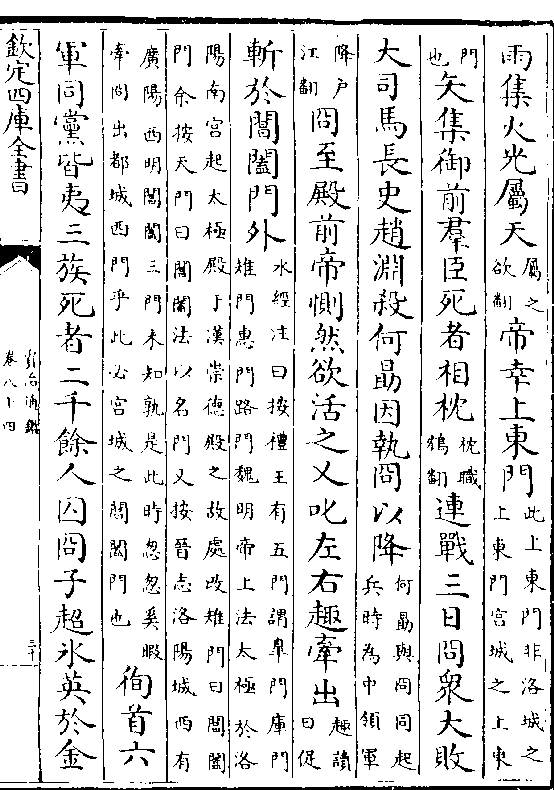 雨集火光屬天屬之欲翻帝幸上東門此上東門非洛城之上東門宮城之上東
門也矢集御前羣臣死者相枕枕職鴆翻連戰三日冏衆大敗
大司馬長史趙淵殺何勗因執冏以降何勗與冏同起兵時為中領軍
降戶江翻冏至殿前帝惻然欲活之乂叱左右趣牽出趣讀曰促
斬於閶闔門外水經注曰按禮王有五門謂臯門庫門雉門應門路門魏明帝上法太極於洛
陽南宮起太極殿于漢崇德殿之故處改雉門曰閶闔門余按天門曰閶闔法以名門又按晉志洛陽城西有
廣陽西明閶闔三門未知孰是此時忽忽奚暇牽冏出都城西門乎此必宮城之閶闔門也徇首六
軍同黨皆夷三族死者二千餘人囚冏子超氷英於金
欽定四庫全書
資治通鑑
卷八十四
三十